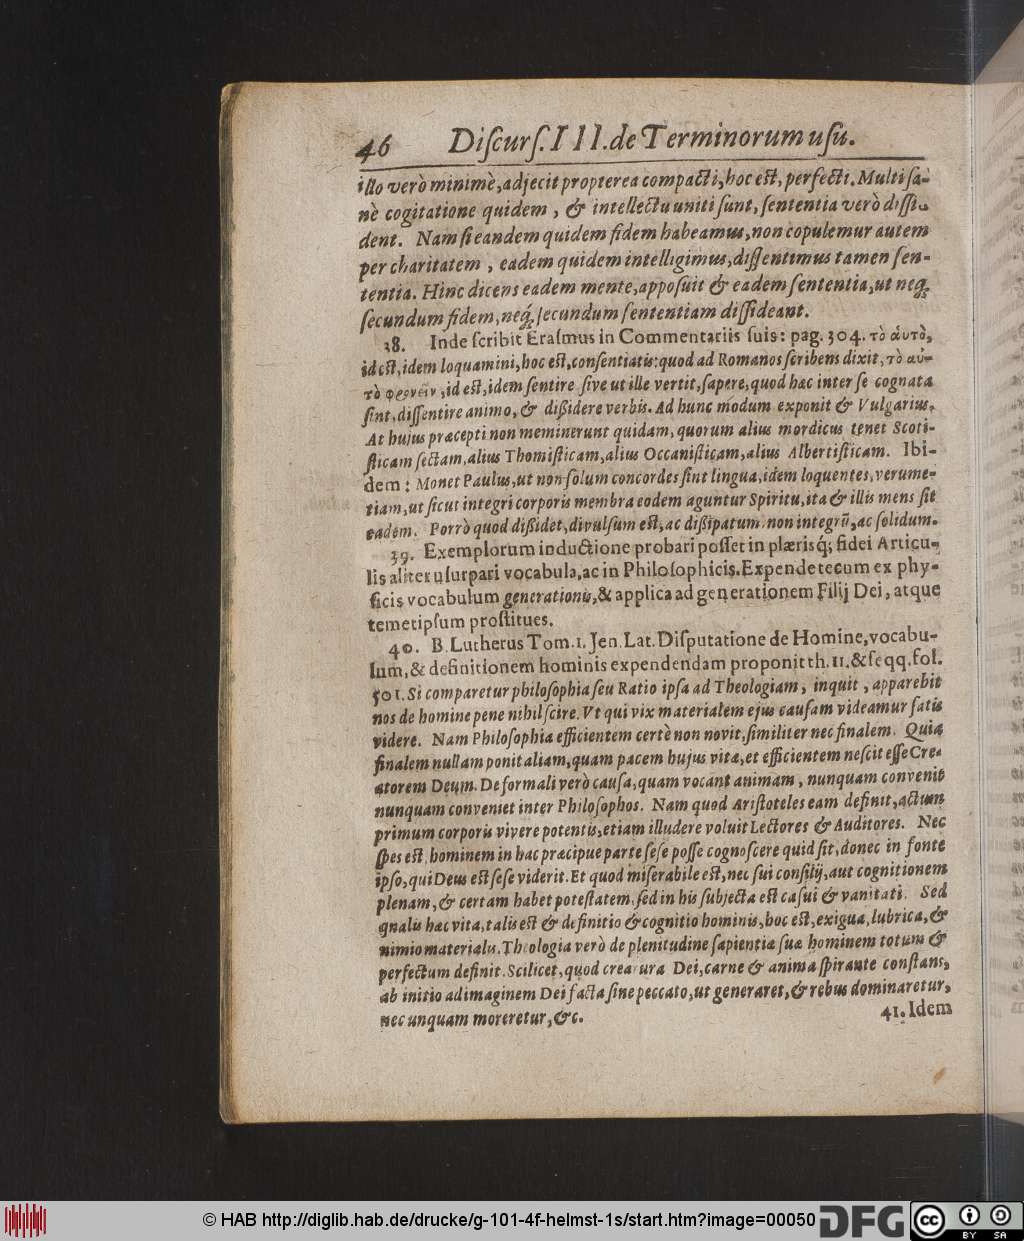 46 Diſcurſ. III. de Terminorum uſu.
illo verò minimè, adjecit propterea compacti, hoc eſt, perfecti. Multi ſa-
nè cogitatione quidem, & intellectu uniti ſunt, ſententia verò diſſi-
dent. Nam ſi eandem quidem fidem habeamus, non copulemur autem
per charitatem, eadem quidem intelligimus, diſſentimus tamen ſen-
tentia. Hinc dicens eadem mente, appoſuit & eadem ſententia, ut neq;
ſecundum fidem, neq; ſecundum ſententiam diſſideant.
38. Inde ſcribit Eraſmus in Commentariis ſuis: pag. 304. τὸ ἀυτὸ,
id eſt, idem loquamini, hoc eſt, conſentiatis: quod ad Romanos ſcribens dixit, τὸ αὐ-
τὸ φρονεῖν, id eſt, idem ſentire ſive ut ille vertit, ſapere, quod hac inter ſe cognata
ſint, diſſentire animo, & dißidere verbis. Ad hunc modum exponit & Vulgarius.
At hujus præcepti non meminerunt quidam, quorum alius mordicus tenet Scoti-
ſticam ſectam, alius Thomiſticam, alius Occaniſticam, alius Albertiſticam. Ibi-
dem: Monet Paulus, ut non ſolum concordes ſint lingua, idem loquentes, verume-
tiam, ut ſicut integri corporis membra eodem aguntur Spiritu, ita & illis mens ſit
eadem. Porrò quod dißidet, divulſum eſt, ac dißipatum, non integrũ, ac ſolidum.
39. Exemplorum inductione probari poſſet in plærisq́; fidei Articu-
lis aliter uſurpari vocabula, ac in Philoſophicis. Expende tecum ex phy-
ſicis vocabulum generationis, & applica ad generationem Filij Dei, atque
temetipſum proſtitues.
40. B. Lutherus Tom. 1. Jen. Lat. Diſputatione de Homine, vocabu-
lum, & definitionem hominis expendendam proponit th. 11. & ſeqq. fol.
501. Si comparetur philoſophia ſeu Ratio ipſa ad Theologiam, inquit, apparebit
nos de homine pene nihil ſcire. Vt qui vix materialem ejus cauſam videamur ſatis
videre. Nam Philoſophia efficientem certè non novit, ſimiliter nec finalem. Quia
finalem nullam ponit aliam, quam pacem hujus vitæ, et efficientem neſcit eſſe Cre-
atorem Deum. De formali verò cauſa, quam vocant animam, nunquam convenit
nunquam conveniet inter Philoſophos. Nam quod Ariſtoteles eam definit, actum
primum corporis vivere potentis, etiam illudere voluit Lectores & Auditores. Nec
ſpes eſt, hominem in hac præcipue parte ſeſe poſſe cognoſcere quid ſit, donec in fonte
ipſo, qui Deus eſt ſeſe viderit. Et quod miſerabile eſt, nec ſui conſilij, aut cognitionem
plenam, & certam habet poteſtatem, ſed in his ſubjecta eſt caſui & vanitati. Sed
qualis hæc vita, talis eſt & definitio & cognitio hominis, hoc eſt, exigua, lubrica, &
nimio materialis. Theologia verò de plenitudine ſapientiæ ſuæ hominem totum &
perfectum definit. Scilicet, quod creatura Dei, carne & anima ſpirante conſtans,
ab initio ad imaginem Dei facta ſine peccato, ut generaret, & rebus dominaretur,
nec unquam moreretur, &c.
41. Idem
© HAB http://diglib.hab.de/drucke/g-101-4f-helmst-1s/start.htm?image=00050
DFG
cc
BY SA